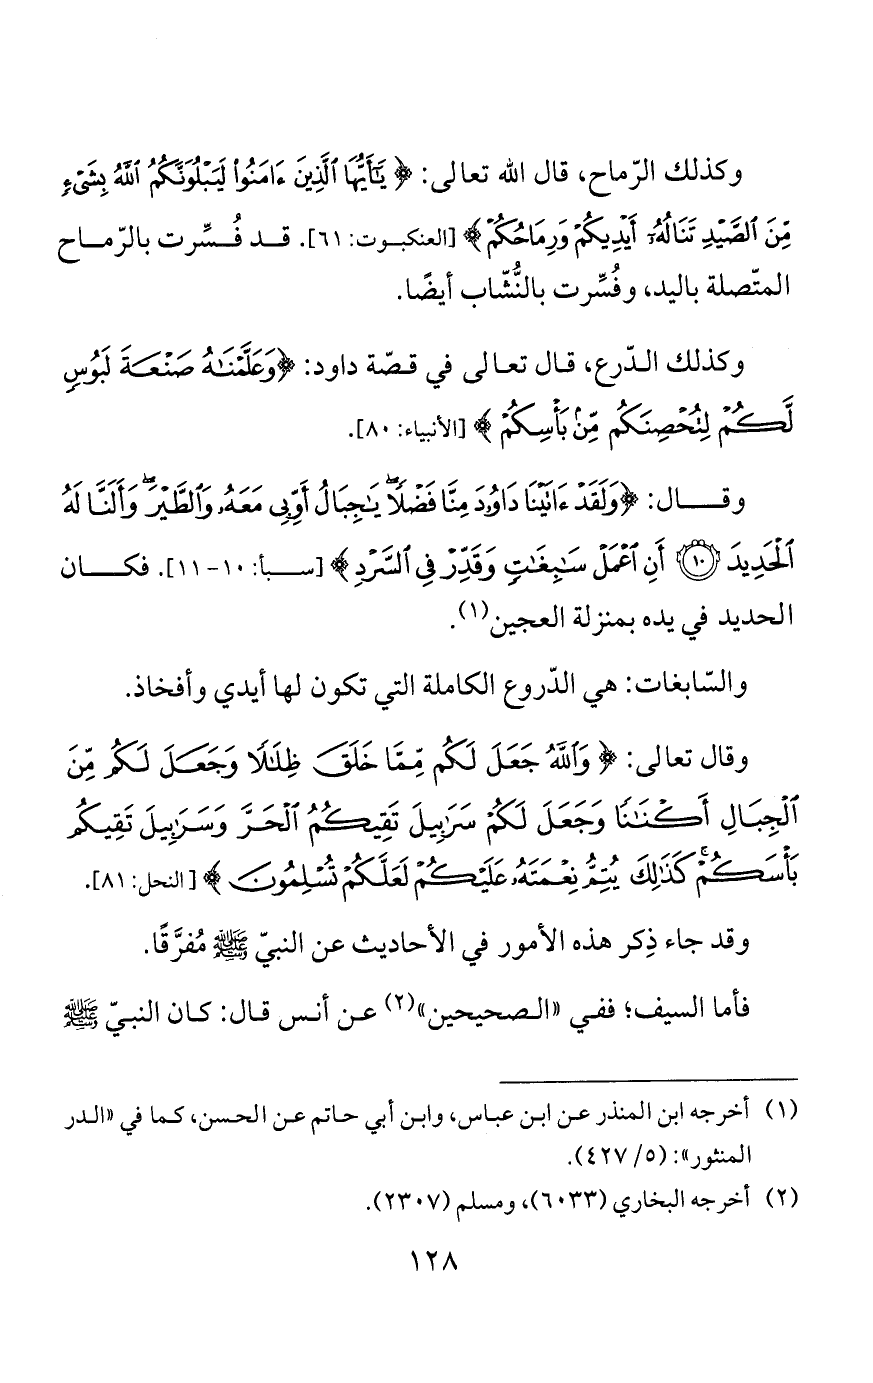 وكذلك الرّماح، قال الله تعالى: ﴿ يَٰٓأَيُّهَا ٱلَّذِينَ ءَامَنُوا۟ لَيَبْلُوَنَّكُمُ ٱللَّهُ بِشَىْءٍ
مِّنَ ٱلصَّيْدِ تَنَالُهُۥٓ أَيْدِيكُمْ وَرِمَاحُكُمْ ﴾ [العنكبوت: ٦١]. قد فُسِّرت بالرّماح
المتّصلة باليد، وفُسِّرت بالنُّشّاب أيضًا.
وكذلك الدّرع، قال تعالى في قصّة داود: ﴿وَعَلَّمْنَٰهُ صَنْعَةَ لَبُوسٍ
لَّكُمْ لِتُحْصِنَكُم مِّنۢ بَأْسِكُمْ ﴾ [الأنبياء: ٨٠].
وقال: ﴿وَلَقَدْ ءَاتَيْنَا دَاوُۥدَ مِنَّا فَضْلًا ۖ يَٰجِبَالُ أَوِّبِى مَعَهُۥ وَٱلطَّيْرَ ۖ وَأَلَنَّا لَهُ
ٱلْحَدِيدَ ١٠ أَنِ ٱعْمَلْ سَٰبِغَٰتٍ وَقَدِّرْ فِى ٱلسَّرْدِ ﴾ [سبأ: ١٠-١١]. فكان
الحديد في يده بمنزلة العجين(١).
والسّابغات: هي الدّروع الكاملة التي تكون لها أيدي وأفخاذ.
وقال تعالى: ﴿ وَٱللَّهُ جَعَلَ لَكُم مِّمَّا خَلَقَ ظِلَٰلًا وَجَعَلَ لَكُم مِّنَ
ٱلْجِبَالِ أَكْنَٰنًا وَجَعَلَ لَكُمْ سَرَٰبِيلَ تَقِيكُمُ ٱلْحَرَّ وَسَرَٰبِيلَ تَقِيكُم
بَأْسَكُمْ ۚ كَذَٰلِكَ يُتِمُّ نِعْمَتَهُۥ عَلَيْكُمْ لَعَلَّكُمْ تُسْلِمُونَ ﴾ [النحل: ٨١].
وقد جاء ذِكر هذه الأمور في الأحاديث عن النبيّ ﷺ مُفرَّقًا.
فأما السيف؛ ففي «الصحيحين»(٢) عن أنس قال: كان النبيّ ﷺ
(١) أخرجه ابن المنذر عن ابن عباس، وابن أبي حاتم عن الحسن، كما في «الدر
المنثور»: (٥/ ٤٢٧).
(٢) أخرجه البخاري (٦٠٣٣)، ومسلم (٢٣٠٧).
١٢٨